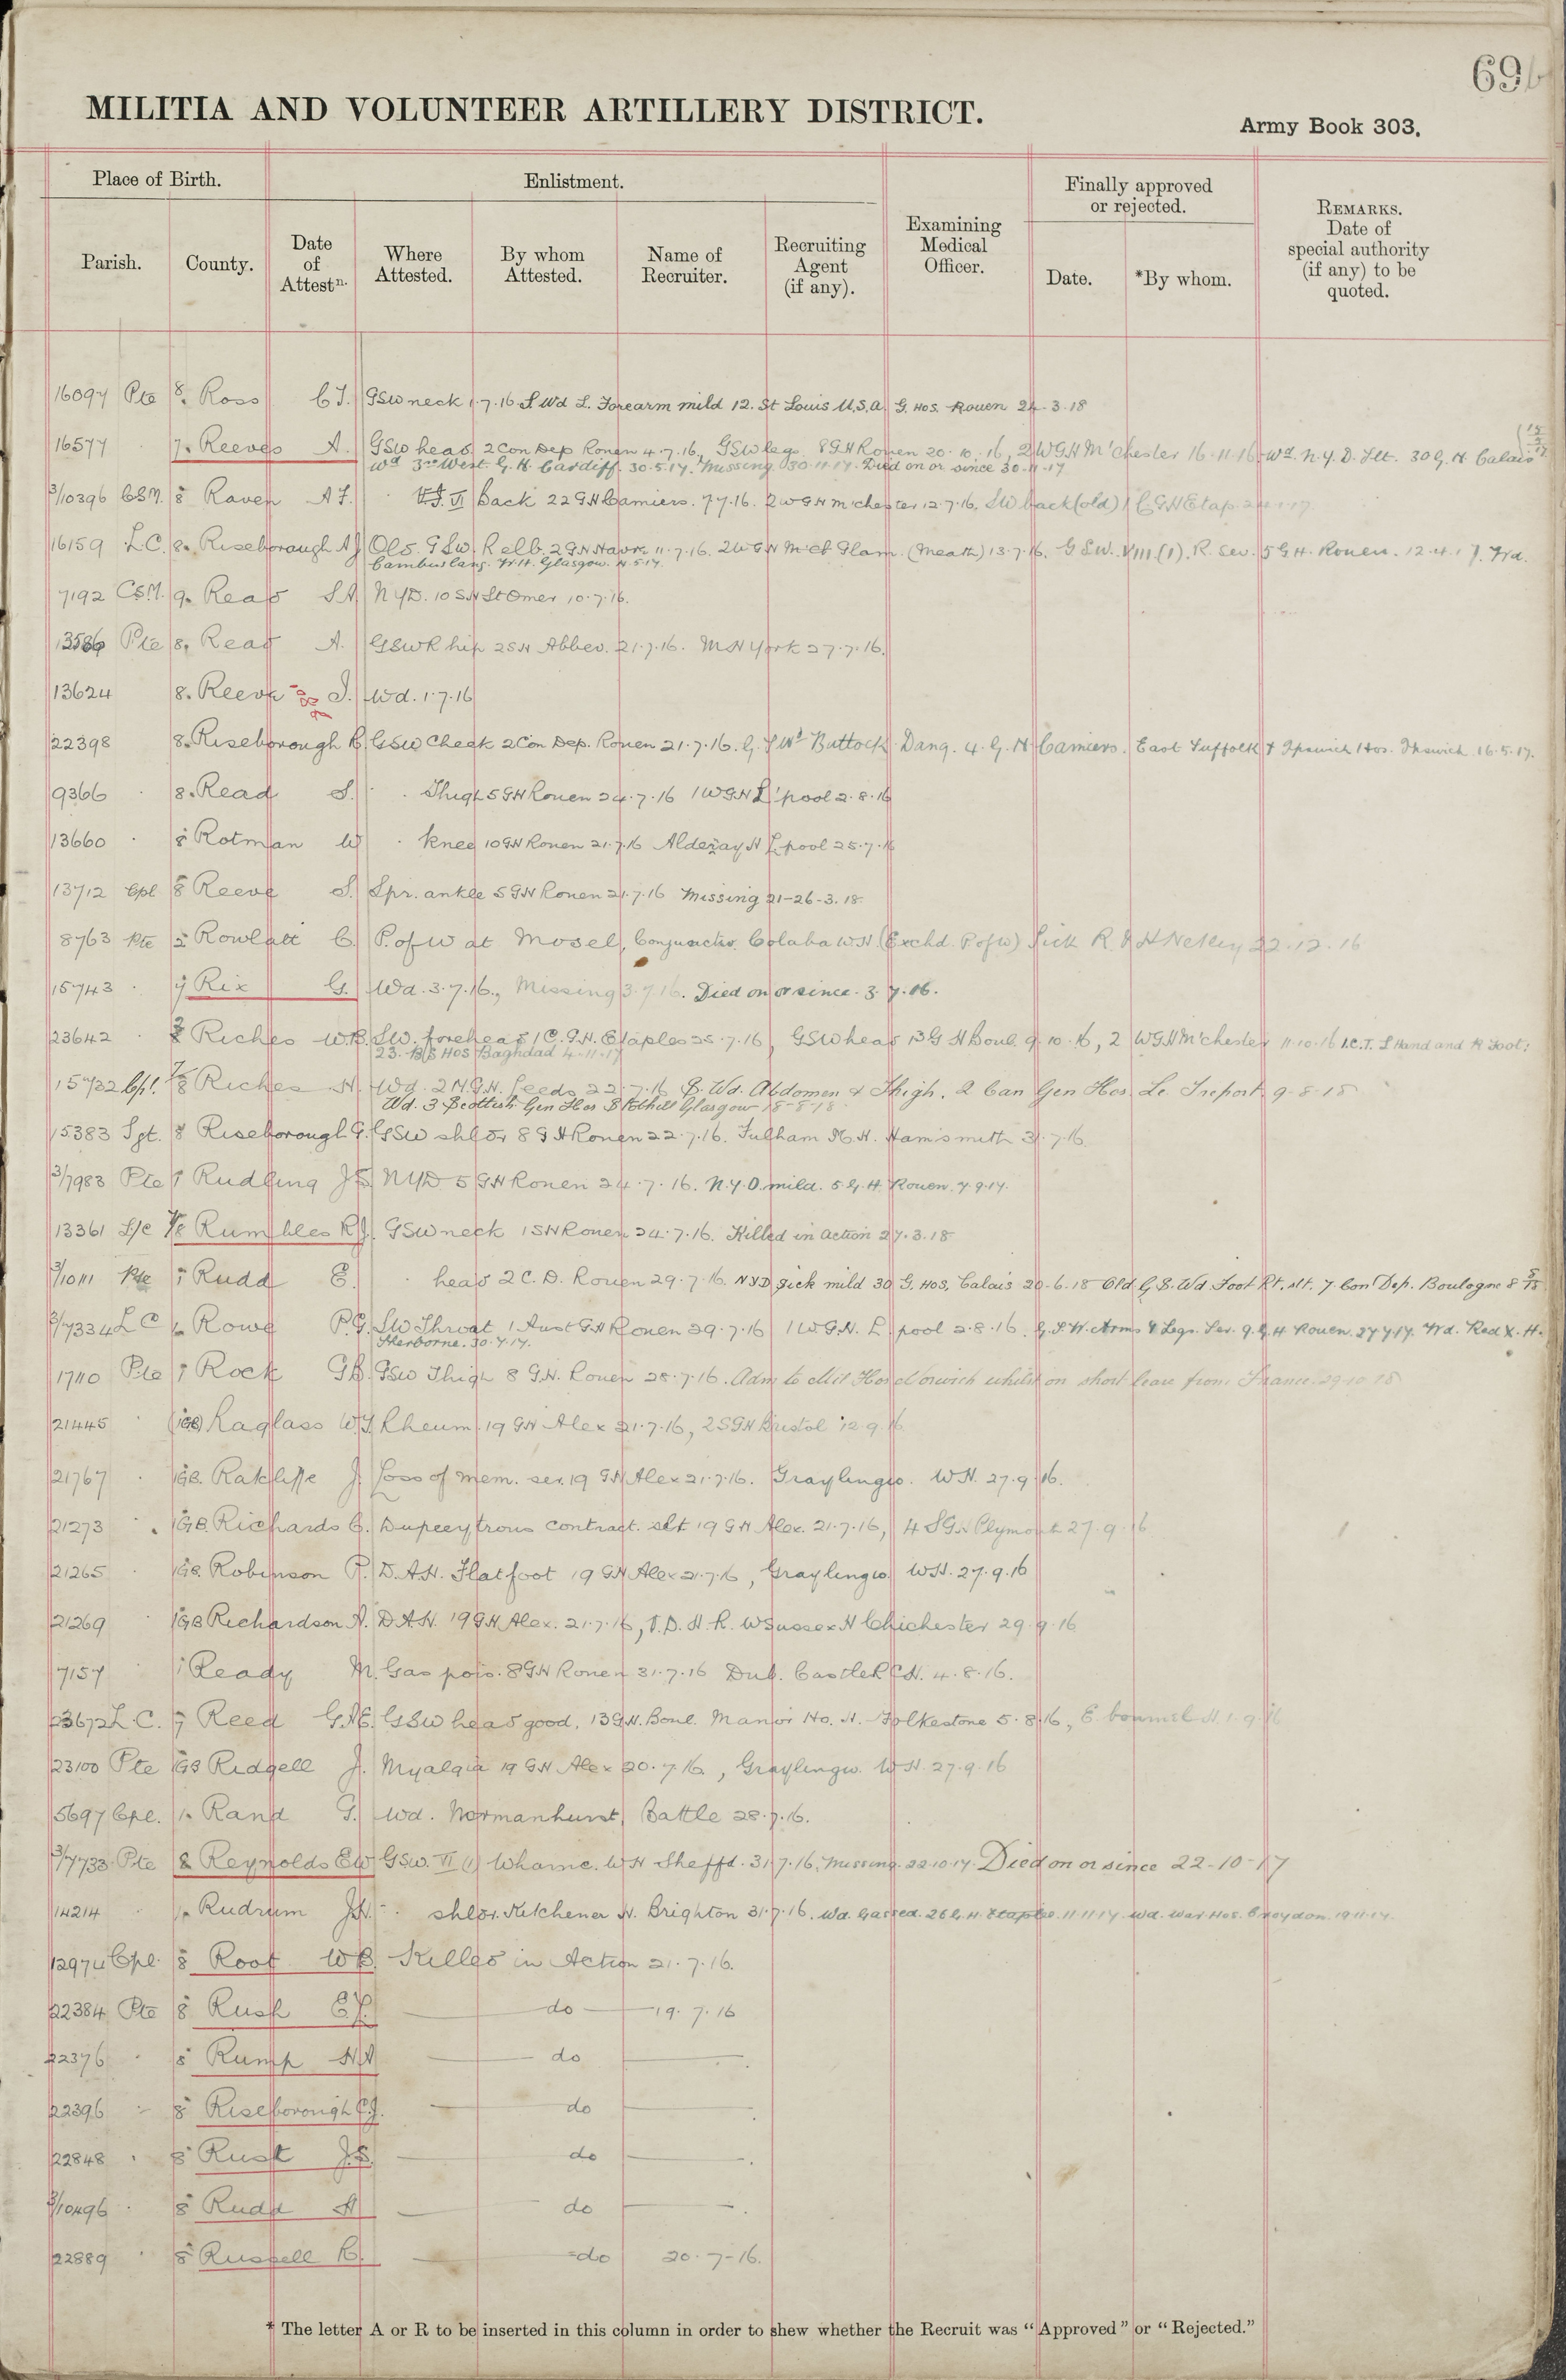 69
MILITIA AND VOLUNTEER ARTILLERY DISTRICT.
Army Book 303.
Place of Birth.
Enlistment.
Finally approved or rejected.
REMARKS. Date of special authority (if any) to be quoted.
Parish.
County.
Date of Attestn.
Where Attested.
By whom Attested.
Name of Recruiter.
Recruiting Agent (if any).
Examining Medical Officer.
Date.
*By whom.
16097 Pte 8. Ross C J. GSW neck 1.7.16 S. Wd L. Forearm mild 12. St Louis U.S.A. G. Hos. Rouen 24-3-18
16577 7. Reeves A. GSW head 2 Con Dep Rouen 4.7.16, GSW legs 8 GH Rouen 20.10.16, 2 WGH M'chester 16-11-16 Wd. N.Y.D. Slt. 30 G. H. Calais
Wd 3rd West. G. H. Cardiff. 30.5.17. Missing 30.11.17. Died on or since 30-11-17
3/10396 CSM. 8 Raven A J. VI Back 22 GH Camiers. 7.7.16. 2 WGH M'chester 12.7.16. SW back (old) GH Etap
16159 L.C. 8. Riseborough A J Old. GSW. R elb. 2 GH Havre 11.7.16. 2WGH M'ch Glam. (Neath) 13.7.16. GSW. VIII (1). R. Sev. 5 GH. Rouen. 12.4.17. Wd.
Cambuslang. W.H. Glasgow.
7192 CSM. 9. Read S A NYD. 10 SH St Omer 10.7.16.
13586 Pte 8. Read A. GSW R hip 2SH Abbev. 21.7.16. MH York 27.7.16.
13624 8. Reeve J. Wd. 1.7.16
22398 8. Riseborough R GSW Cheek 2 Con Dep. Rouen 21.7.16. G. S Wd Buttock Dang. 4. G. H Camiers. East Suffolk & Ipswich Hos. Ipswich 16.5.17.
9366 8. Read S. Thigh 5 GH Rouen 24.7.16 1 WGH L'pool 2.8.16
13660 8 Rotman W knee 10 GH Rouen 21.7.16 Alderhay H L'pool 25.7.16
13712 Cpl 8 Reeve S. Spr. ankle 5 GH Rouen 21.7.16 Missing 21-26-3.18
8763 Pte 2 Rowlatt C. P. of W at Mosel, Conjunctiv. Colaba WH (Exchd. P of W) Sick R. V H Netley 22.12.16
15743 7 Rix G. Wd. 3.7.16., Missing 3.7.16. Died on or since. 3.7.16.
23642 Riches W.B. SW. forehead 1 C. G.H. Etaples 25.7.16, GSW head 13 G H Boul. 9.10.16, 2 WGH M'chester 11.10.16 I.C.T. L Hand and R Foot:
23. B/S Hos Baghdad 4-11-17
15732 Cpl. 7/8 Riches H. Wd. 2 N G.H. Leeds 22.7.16 B. Wd. Abdomen & Thigh. 2 Can Gen Hos. Le Treport 9-8-18
Wd. 3 Scottish Gen Hos Stobhill Glasgow 18-8-18
15383 Sgt. 8 Riseborough G. GSW shldr 8 GH Rouen 22.7.16. Fulham M. H. Hamsmith 31.7.16.
3/7983 Pte Rudling J S NYD 5 GH Rouen 24.7.16. N.Y.D. mild. 5 G. H. Rouen. 7.9.17.
13361 L/C 7/8 Rumbles R J. GSW neck 1 SH Rouen 24.7.16. Killed in action 27.3.18
3/10111 Pte 7 Rudd E. head 2 C. D. Rouen 29.7.16. NYD sick mild 30 G. Hos. Calais 20-6-18 Old G. S. Wd Foot Rt. slt. 7 Con Dep. Boulogne
3/7334 L C 1. Rowe P.G. SW Throat 1 Aust GH Rouen 29.7.16 1 WGH. L'pool 2.8.16. G. S W. Arms & Legs. Sev. 9. G. H Rouen. 27.7.17. Wd. Red X. H.
Sherborne. 30.7.17.
17110 Pte 7 Rock G B. GSW Thigh 8 G.H. Rouen 28.7.16. Adm to Mil Hos Norwich whilst on short leave from France 29-10-18
21445 1GB Raglass W J Rheum. 19 GH Alex 21.7.16, 2SGH Bristol 12.9.16
21767 1GB. Ratcliffe J. Loss of mem. ser. 19 GH Alex 21.7.16. Graylingw. WH. 27.9.16.
21273 1GB. Richards C. Dupeeytrous contract. slt 19 GH Alex. 21.7.16, 4 SGH Plymouth 27.9.16
21265 1GB. Robinson P. D.A.H. Flatfoot 19 GH Alex 21.7.16, Graylingw. WH. 27.9.16
21269 1GB Richardson A. DAH. 19 GH Alex. 21.7.16, V.D.H. R. W Sussex H Chichester 29.9.16
7157 1 Ready M. Gas pois. 8 GH Rouen 31.7.16 Dub. Castle R C H. 4.8.16.
23672 L.C. 7 Reed G.A.E. GSW head good, 13 GH. Boul. Manor Ho. H. Folkestone 5.8.16, E. H. 1.9.16
23100 Pte 1GB Ridgell J. Myalgia 19 GH Alex 20.7.16., Graylingw. WH. 27.9.16
5697 Cpl. 1. Rand G. Wd. Normanhurst, Battle 28.7.16.
3/7733 Pte 8 Reynolds E W GSW. VI (1) Wharnc. WH Sheffd. 31.7.16, Missing. 22.10.17. Died on or since 22-10-17
14214 1. Rudrum J H. shldr. Kitchener H. Brighton 31.7.16. Wd. Gassed. 26 G. H. Etaples. 11.11.17 Wd. War Hos. Croydon. 19.11.17.
12974 Cpl. 8 Root W B. Killed in Action 21.7.16.
22384 Pte 8 Rush E F. do 19.7.16
22376 8 Rump H A do
22396 8 Riseborough C J. do
22848 8 Rust J.S. do
3/10496 8 Rudd A do
22889 8 Russell B. do 20-7-16.
* The letter A or R to be inserted in this column in order to shew whether the Recruit was “Approved” or “Rejected.”